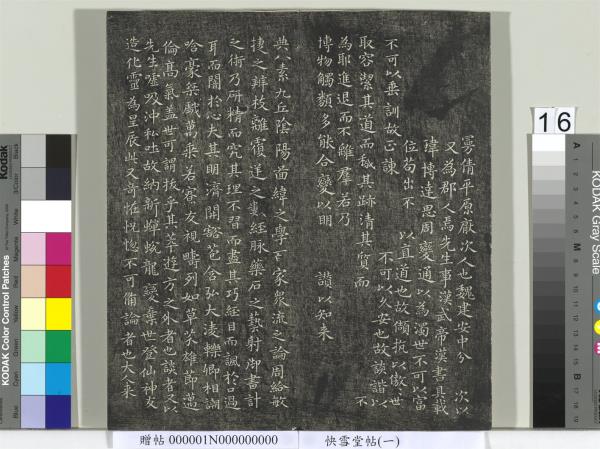 曼倩平原厭次人也魏建安中分 次以
又為郡人焉先生事漢武帝漢書具載
瑋博達思周變通以為濁世不可以富
位苟出不 以直道也故傾抗以傲世
不可以垂訓故正諫 不可以久安也故詼諧以
取容潔其道而穢其跡清其質而 不
為耶進退而不離羣若乃
博物觸類多能合變以明 讚以知来
典八素九丘陰陽啚緯之學百家衆流之論周給敏
捷之辨枝離覆逆之數經脉藥石之藝射御書計
之術乃研精而究其理不習而盡其巧經目而諷於口過
耳而闇於心夫其明濟開豁苞含弘大淩轢卿相謿
哈豪桀戲萬乘若寮友視疇列如草芥雄莭邁
倫高氣蓋世可謂拔乎其萃遊方之外者也談者又以
先生噓吸沖和吐故納新蟬蛻龍變棄世登仙神友
造化靈為星辰此又奇怪恍惚不可備論者也大人来
16
KODAK Color Control Patches
Kodak
Blue
Cyan
Green
Yellow
Red
Magenta
White
3/Color
Black
KODAK Gray Scale
A 1 2 3 4 5 6 M 8 9 10 11 12 13 14 15 B 17 18 19
贈帖 000001N000000000
快雪堂帖(一)